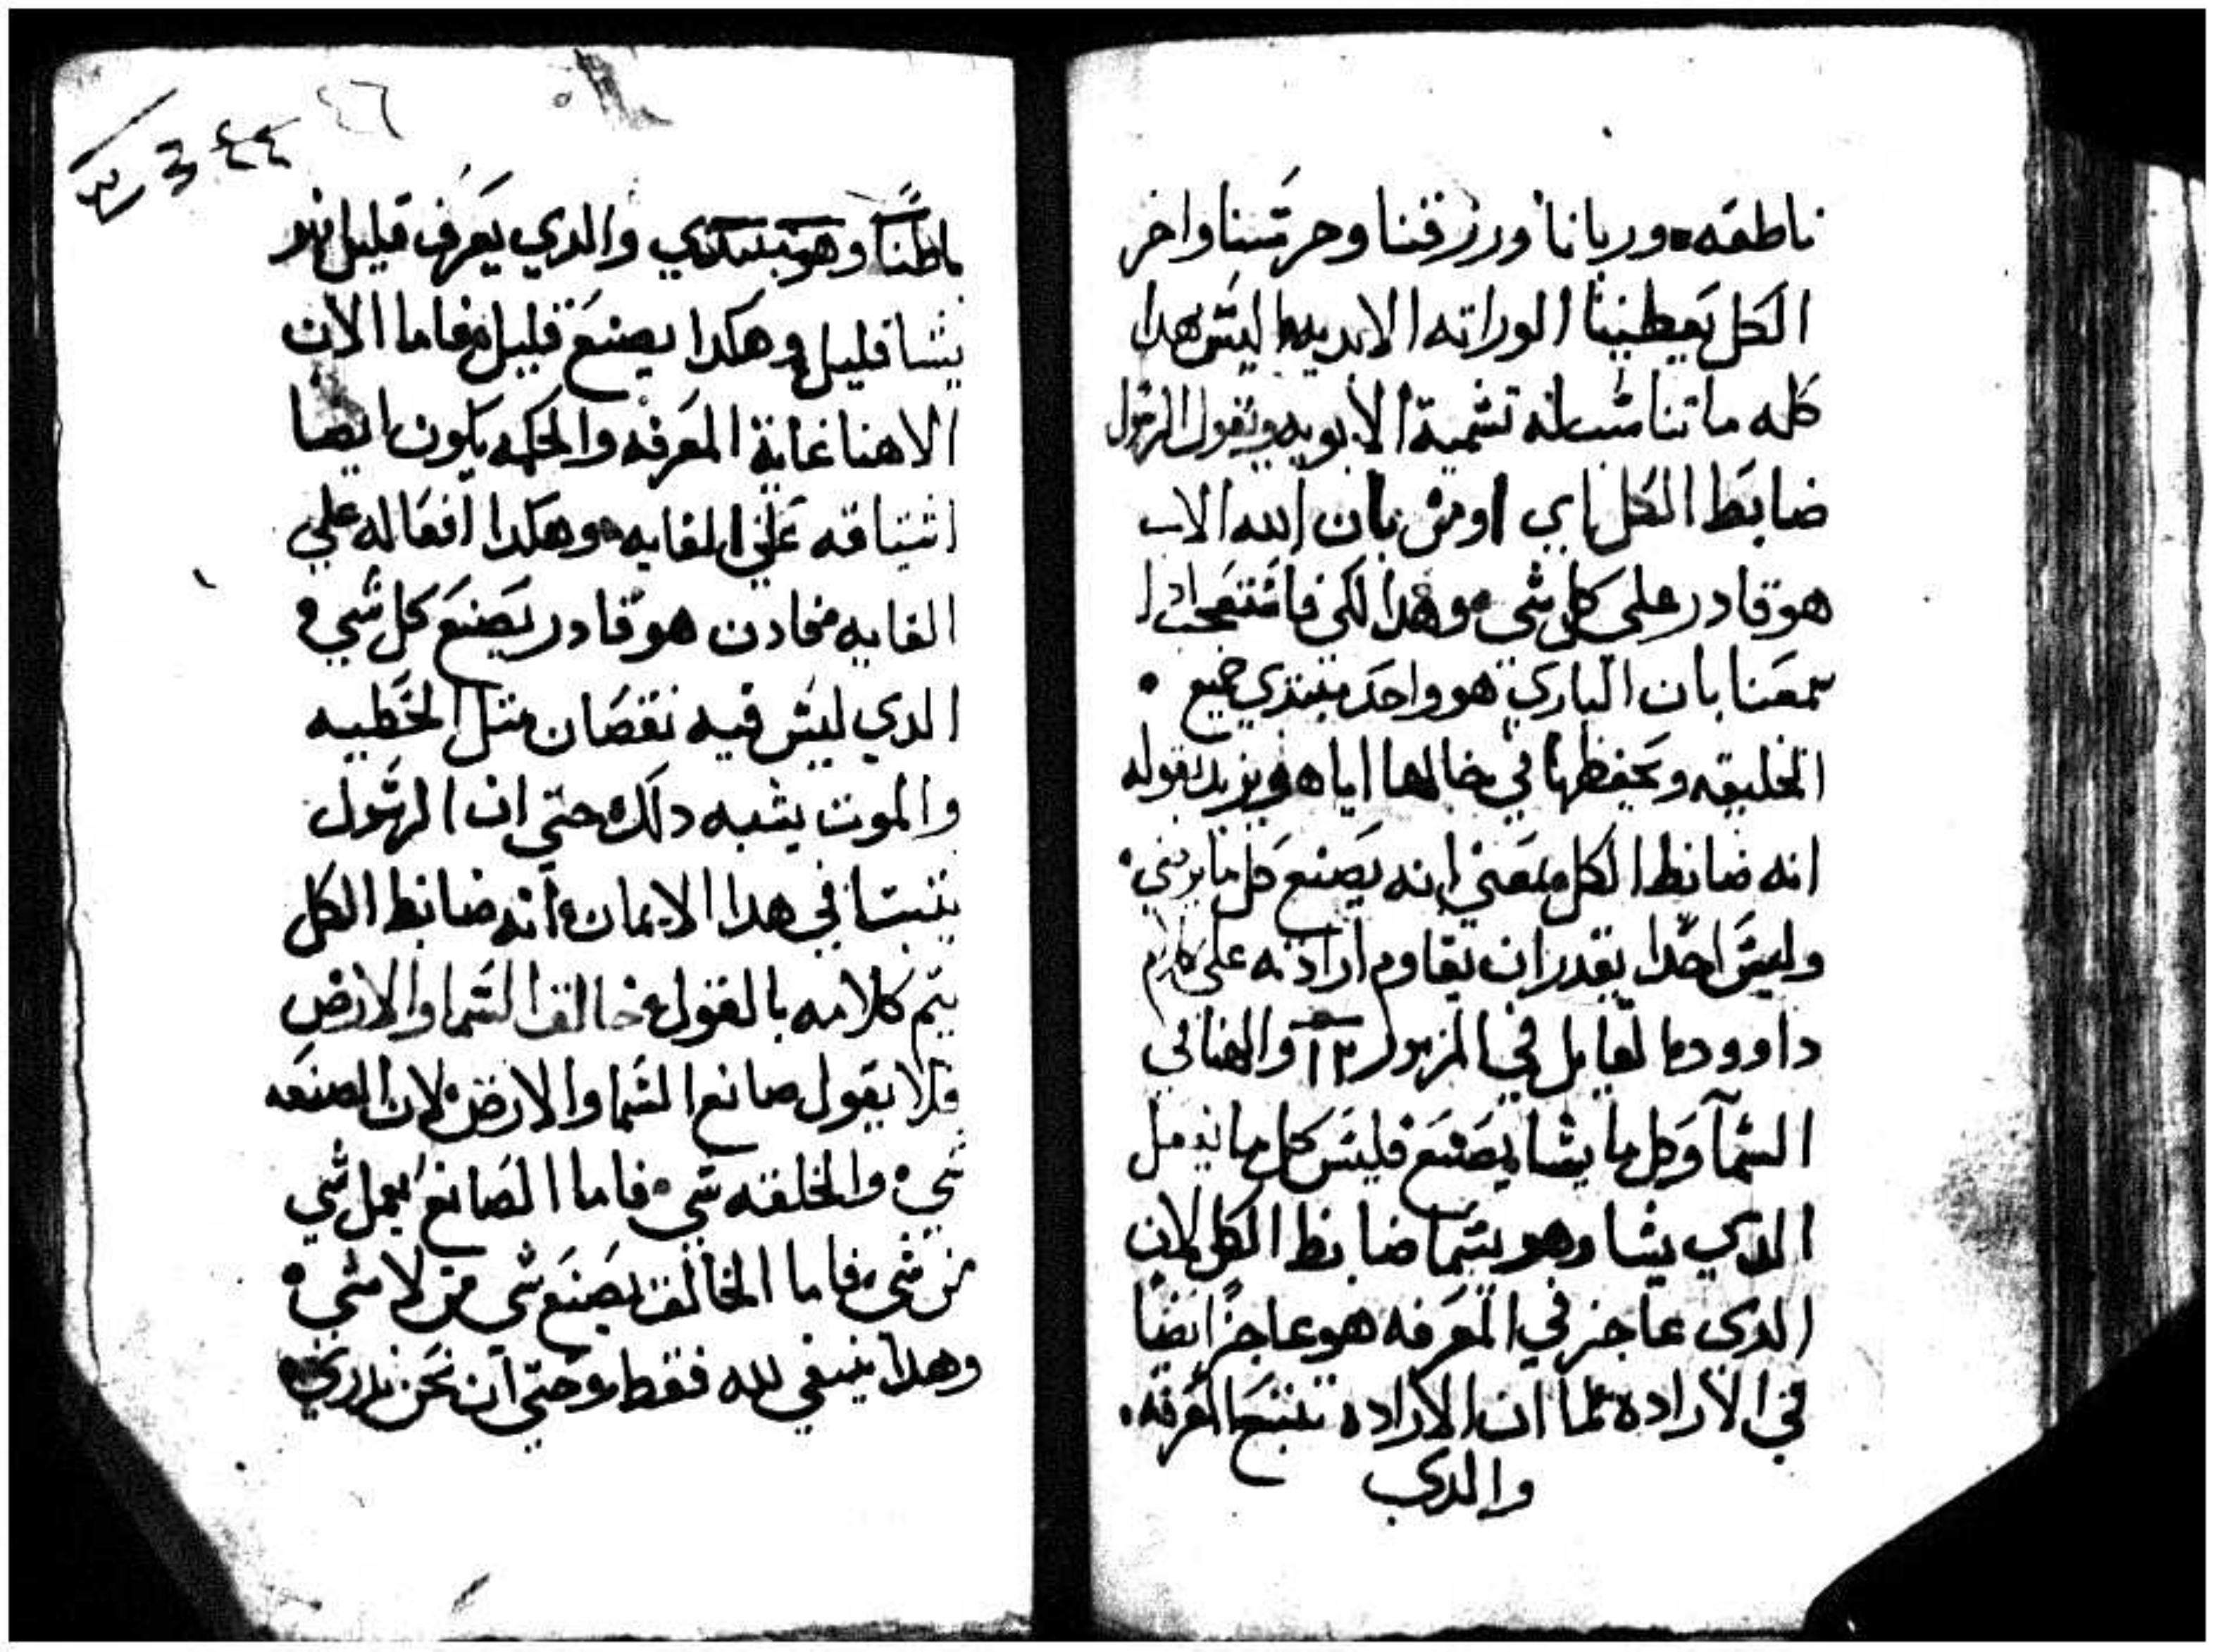 ناطقه وربانا ورزقنا وحرسنا واخر
الكل يعطينا الوراته الابديه اليس هدا
كله ما تناسب له تسمية الابويه ويقول الرسول
ضابط الكل اي اومن بان الله الاب
هو قادر على كل شي وهدا لكي فاستعجب ادا
سمعنا بان الباري هو واحد مبتدي جميع
الخليقه ويحفظها في اياها ويزيد بقوله
انه ضابط الكل بمعني انه يصنع كل ما يرضي
وليس احدا يقدر ان يقاوم ارادته على كلام
داوود القايل في المزمور ١١٣ والهنا في
السمآ وكل ما يشا يصنع فليس كل ما يعمل
الدي يشا وهو يسما ضابط الكل لان
الدي عاجز في المعرفه هو عاجزًا ايضًا
في الاراده كما ان الاراده تتبع المعرفه
والدي
٤٦
٤٤
باطنًا وهو والدي يعرف قليل
يشا قليل وهكدا يصنع قليل فاما الان
الاهنا غاية المعرفه والحكمه يكون ايضا
اشتياقه علي الغايه وهكدا افعاله علي
الغايه فادن هو قادر يصنع كل شي
الدي ليس فيه نقصان متل الخطيه
والموت يشبه دلك حتي ان الرسول
يتبتنا في هدا الايمان انه ضابط الكل
يتم كلامه بالقول خالق السما والارض
فلا يقول صانع السما والارض لان الصنعه
شي والخلقه شي فاما الصانع يعمل شي
من شي فاما الخالق يصنع شي من لا شي
وهدا ينبغي لله فقط وحتي ان نحن ندري